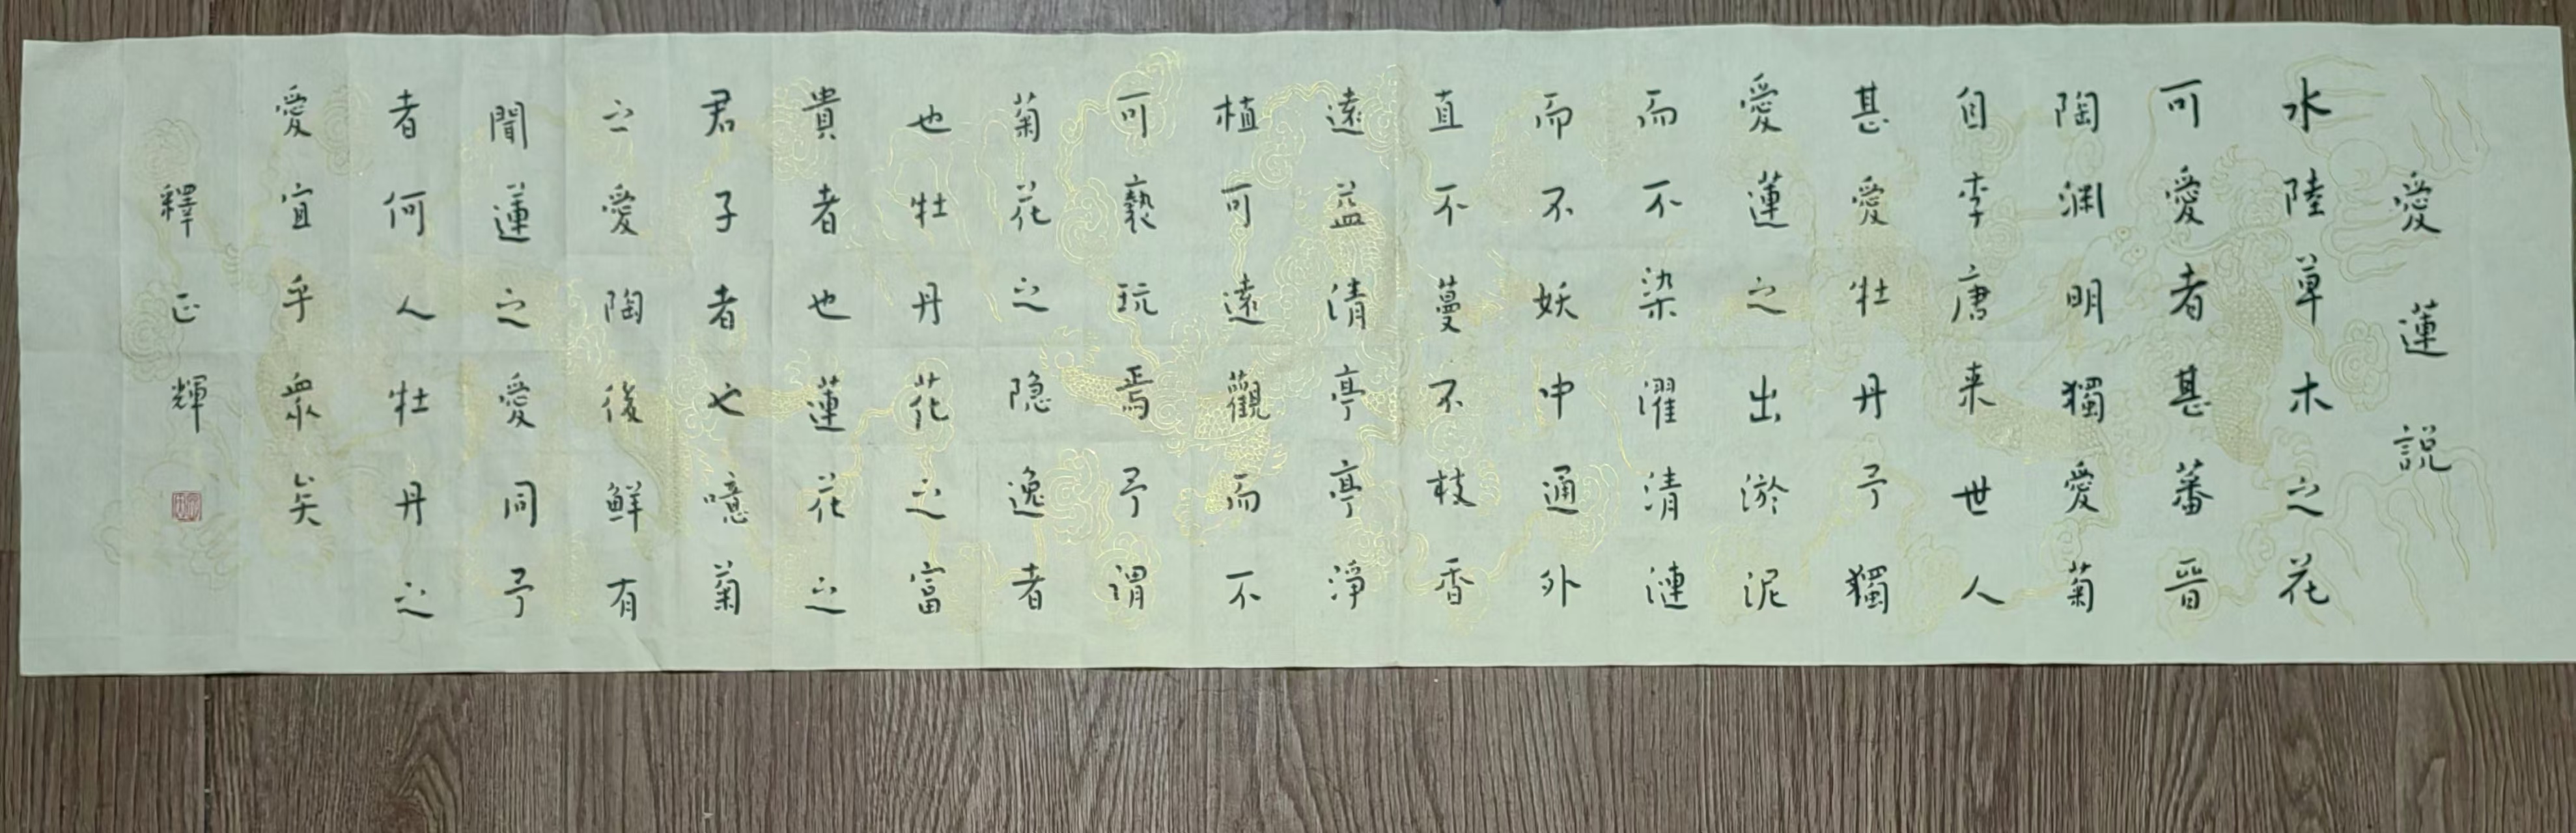 愛蓮説
水陸草木之花
可愛者甚蕃晉
陶渊明獨愛菊
自李唐来世人
甚愛牡丹予獨
愛蓮之出淤泥
而不染濯清漣
而不妖中通外
直不蔓不枝香
遠益清亭亭淨
植可遠觀而不
可褻玩焉予謂
菊花之隐逸者
也牡丹花之富
貴者也蓮花之
君子者也噫菊
之愛陶後鮮有
聞蓮之愛同予
者何人牡丹之
愛宜乎衆矣
釋正輝